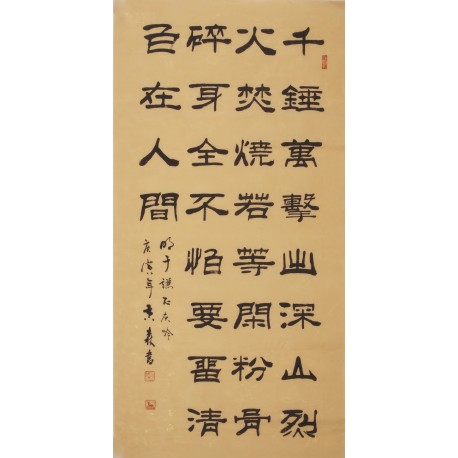 千錘萬擊出深山烈
火焚燒若等閑粉骨
碎身全不怕要留清
白在人間
明于謙石灰吟
庚寅年書